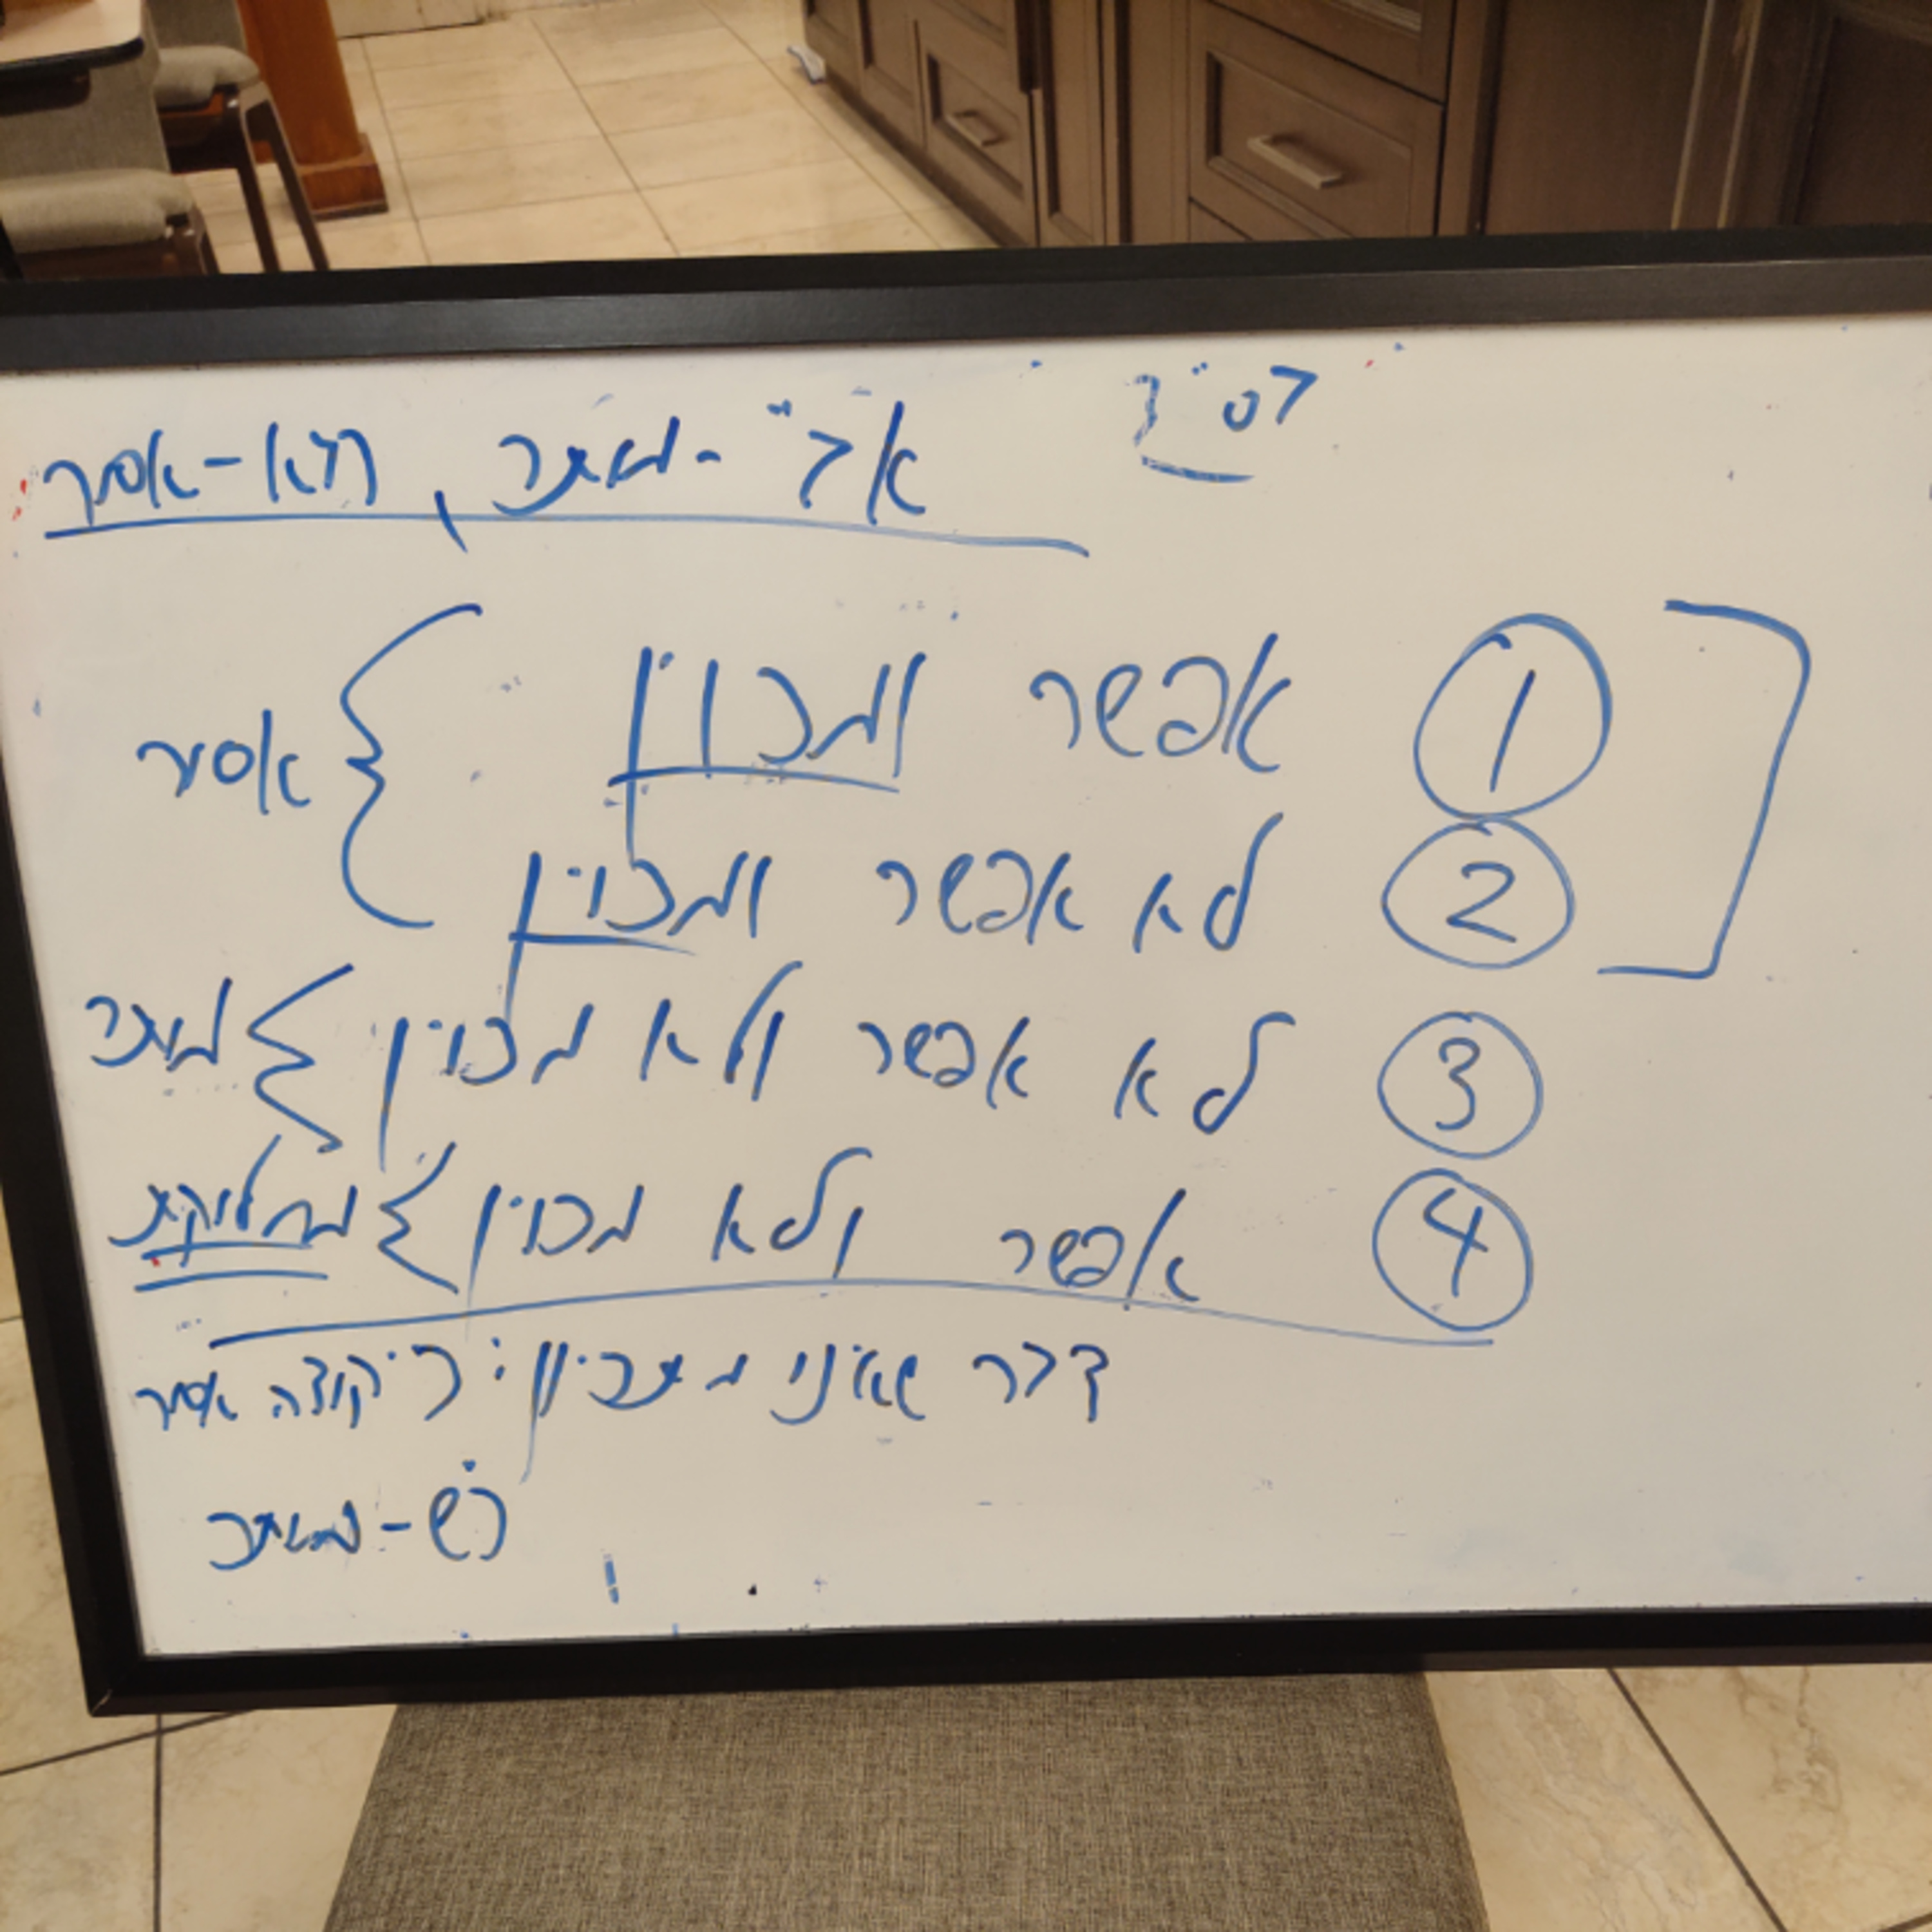 אביי - מותר, רבא - אסור
① אפשר ומכוין
אסור
② לא אפשר ומכוין
③ לא אפשר ולא מכוין } מותר
④ אפשר ולא מכוין } מחלוקת
דבר שאינו מתכוין: ר' יהודה אסור
ר"ש - מותר